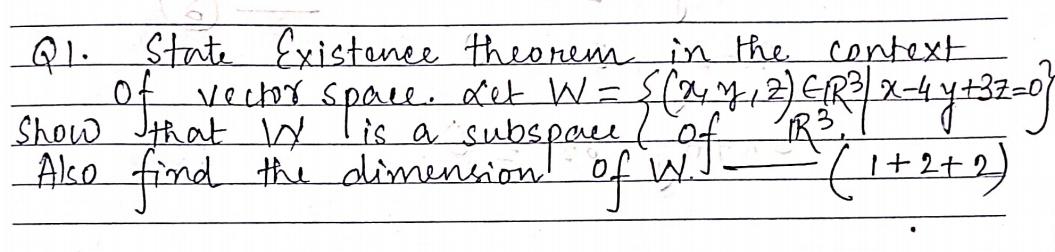 Q1. State Existence theorem in the context
of vector space. Let W = {(x, y, z) ∈ ℝ³ | x-4y+3z=0}
Show that W is a subspace of ℝ³.
Also find the dimension of W. — (1+2+2)